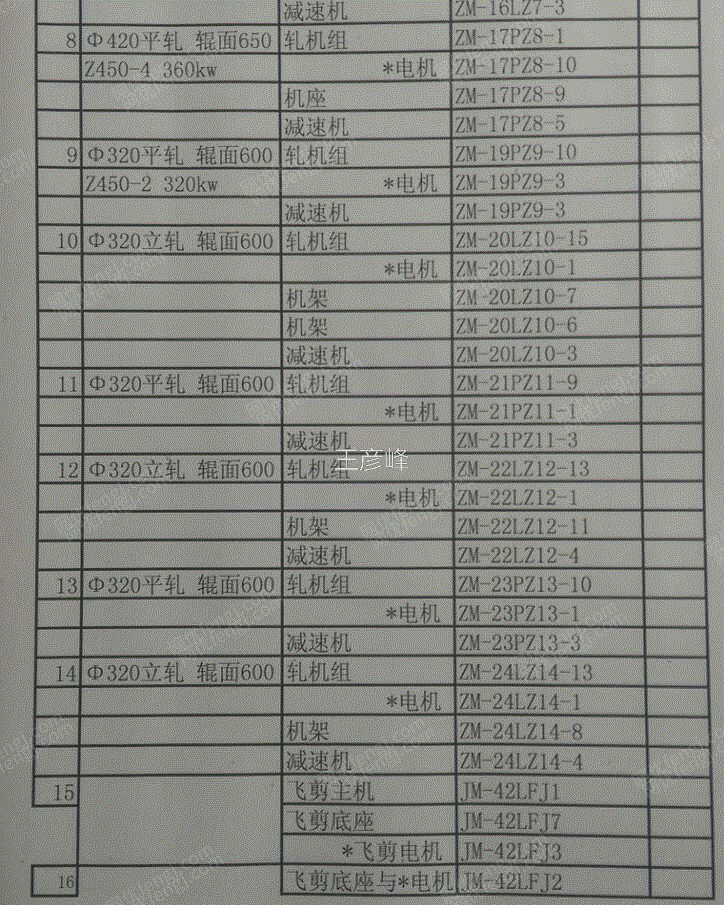 减速机 ZM-16LZ7-3
8 Φ420平轧 辊面650 轧机组 ZM-17PZ8-1
Z450-4 360kw *电机 ZM-17PZ8-10
机座 ZM-17PZ8-9
减速机 ZM-17PZ8-5
9 Φ320平轧 辊面600 轧机组 ZM-19PZ9-10
Z450-2 320kw *电机 ZM-19PZ9-3
减速机 ZM-19PZ9-3
10 Φ320立轧 辊面600 轧机组 ZM-20LZ10-15
*电机 ZM-20LZ10-1
机架 ZM-20LZ10-7
机架 ZM-20LZ10-6
减速机 ZM-20LZ10-3
11 Φ320平轧 辊面600 轧机组 ZM-21PZ11-9
*电机 ZM-21PZ11-1
减速机 ZM-21PZ11-3
王彦峰
12 Φ320立轧 辊面600 轧机组 ZM-22LZ12-13
*电机 ZM-22LZ12-1
机架 ZM-22LZ12-11
减速机 ZM-22LZ12-4
13 Φ320平轧 辊面600 轧机组 ZM-23PZ13-10
*电机 ZM-23PZ13-1
减速机 ZM-23PZ13-3
14 Φ320立轧 辊面600 轧机组 ZM-24LZ14-13
*电机 ZM-24LZ14-1
机架 ZM-24LZ14-8
减速机 ZM-24LZ14-4
15 飞剪主机 JM-42LFJ1
飞剪底座 JM-42LFJ7
*飞剪电机 JM-42LFJ3
16 飞剪底座与*电机 JM-42LFJ2